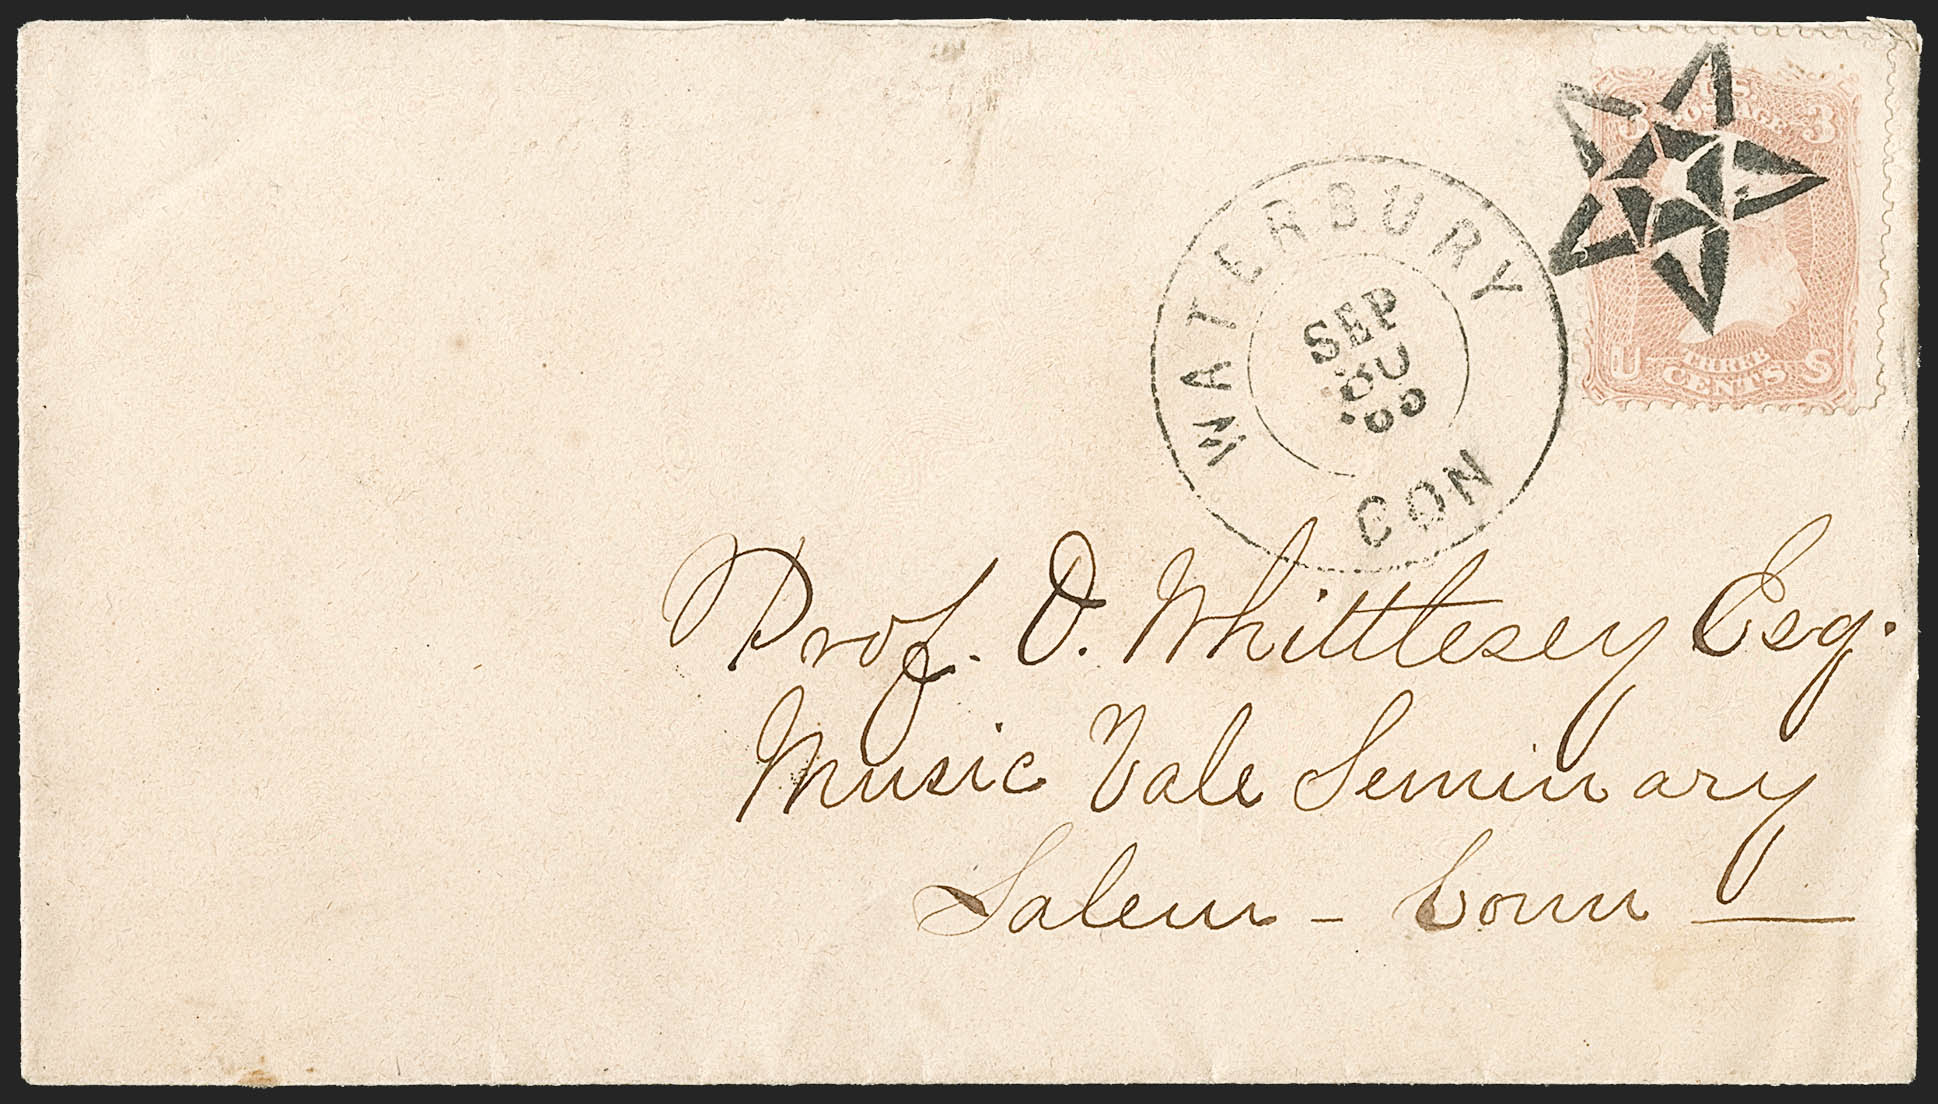 U.S.
POSTAGE
3 3
U THREE S
CENTS
WATERBURY
SEP
30
CON
Prof. O. Whittlesey Esq.
Music Vale Seminary
Salem - Conn